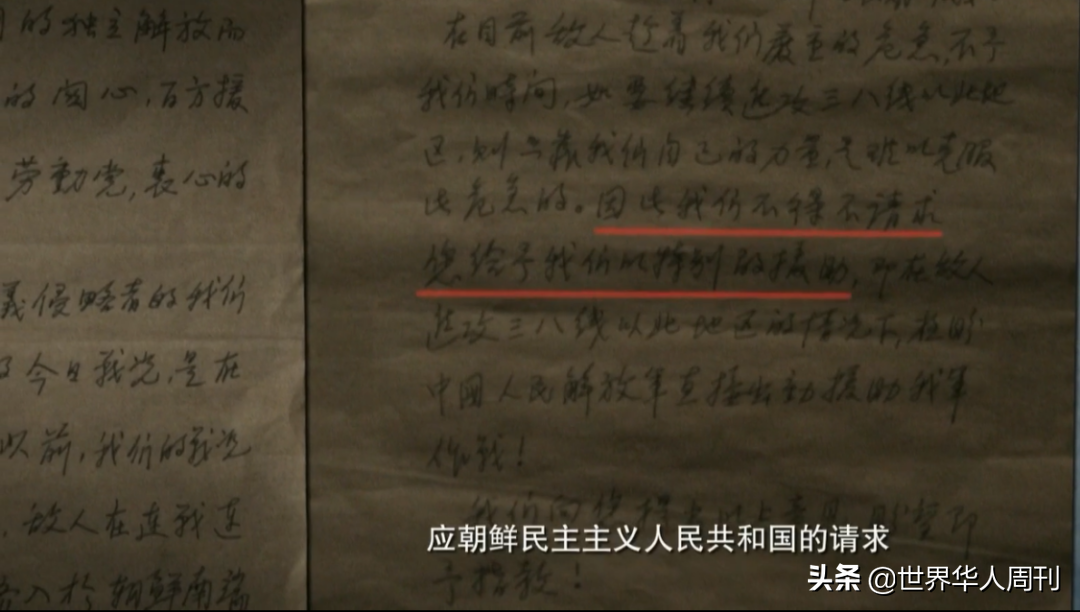 的独立解放而
的关心,百方援
劳動党,衷心的
義侵略者的我们
今日战况,是在
以前,我们的战况
敌人在连战连
入於朝鲜南端
在目前敌人趁着我们严重的危急,不予
我们时间,如要继续进攻三八线以北地
区,则只靠我们自己的力量,是难以克服
此危急的。因此我们不得不请求
您给予我们以特别的援助,即在敌人
进攻三八线以北地区的情况下,
中國人民解放军直接出动援助我军
作战!
我们向您提出以上意見,
予指教!
应朝鲜民主主义人民共和国的请求
头条 @世界华人周刊